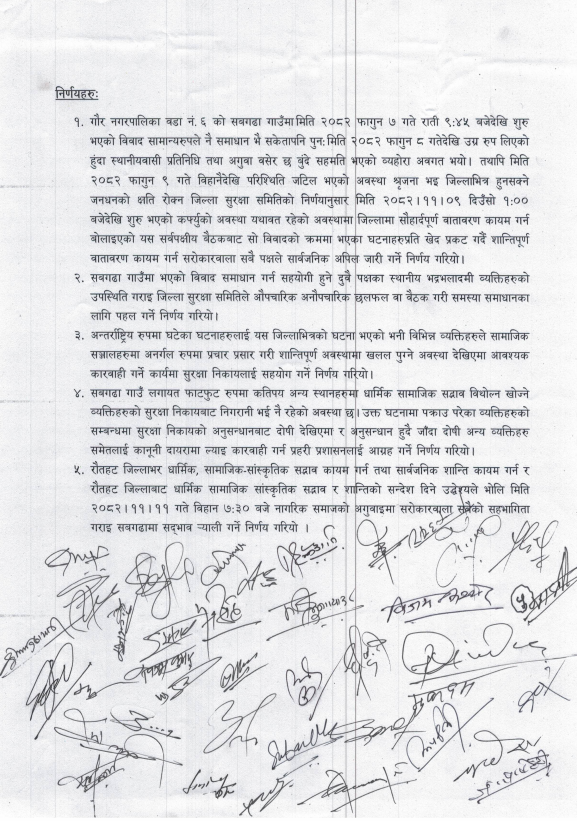 निर्णयहरुः
१. गौर नगरपालिका वडा नं. ६ को सबगढा गाउँमा मिति २०८२ फागुन ७ गते राती ९:४५ बजेदेखि शुरु
भएको विवाद सामान्यरुपले नै समाधान भै सकेतापनि पुनः मिति २०८२ फागुन ८ गतेदेखि उग्र रुप लिएको
हुंदा स्थानीयवासी प्रतिनिधि तथा अगुवा बसेर छ बुंदे सहमति भएको व्यहोरा अवगत भयो। तथापि मिति
२०८२ फागुन ९ गते विहानैदेखि परिश्थिति जटिल भएको अवस्था श्रृजना भइ जिल्लाभित्र हुनसक्ने
जनधनको क्षति रोक्न जिल्ला सुरक्षा समितिको निर्णयानुसार मिति २०८२।११।०९ दिउँसो १:००
बजेदेखि शुरु भएको कर्फ्युको अवस्था यथावत रहेको अवस्थामा जिल्लामा सौहार्दपूर्ण वातावरण कायम गर्न
बोलाइएको यस सर्वपक्षीय बैठकबाट सो विवादको क्रममा भएका घटनाहरुप्रति खेद प्रकट गर्दै शान्तिपूर्ण
वातावरण कायम गर्न सरोकारवाला सबै पक्षले सार्वजनिक अपिल जारी गर्ने निर्णय गरियो।
२. सबगढा गाउँमा भएको विवाद समाधान गर्न सहयोगी हुने दुबै पक्षका स्थानीय भद्रभलादमी व्यक्तिहरुको
उपस्थिति गराइ जिल्ला सुरक्षा समितिले औपचारिक अनौपचारिक छलफल वा बैठक गरी समस्या समाधानका
लागि पहल गर्ने निर्णय गरियो।
३. अन्तर्राष्ट्रिय रुपमा घटेका घटनाहरुलाई यस जिल्लाभित्रको घटना भएको भनी विभिन्न व्यक्तिहरुले सामाजिक
सञ्जालहरुमा अनर्गल रुपमा प्रचार प्रसार गरी शान्तिपूर्ण अवस्थामा खलल पुग्ने अवस्था देखिएमा आवश्यक
कारवाही गर्ने कार्यमा सुरक्षा निकायलाई सहयोग गर्ने निर्णय गरियो।
४. सबगढा गाउँ लगायत फाटफुट रुपमा कतिपय अन्य स्थानहरुमा धार्मिक सामाजिक सद्भाव विथोल्न खोज्ने
व्यक्तिहरुको सुरक्षा निकायबाट निगरानी भई नै रहेको अवस्था छ। उक्त घटनामा पक्राउ परेका व्यक्तिहरुको
सम्बन्धमा सुरक्षा निकायको अनुसन्धानबाट दोषी देखिएमा र अनुसन्धान हुदै जाँदा दोषी अन्य व्यक्तिहरु
समेतलाई कानूनी दायरामा ल्याइ कारवाही गर्न प्रहरी प्रशासनलाई आग्रह गर्ने निर्णय गरियो।
५. रौतहट जिल्लाभर धार्मिक, सामाजिक-सांस्कृतिक सद्भाव कायम गर्न तथा सार्वजनिक शान्ति कायम गर्न र
रौतहट जिल्लाबाट धार्मिक सामाजिक सांस्कृतिक सद्भाव र शान्तिको सन्देश दिने उद्धेश्यले भोलि मिति
२०८२।११।११ गते विहान ७:३० बजे नागरिक समाजको अगुवाइमा सरोकारवाला सबैको सहभागिता
गराइ सबगढामा सद्‌भाव र्‍याली गर्ने निर्णय गरियो ।